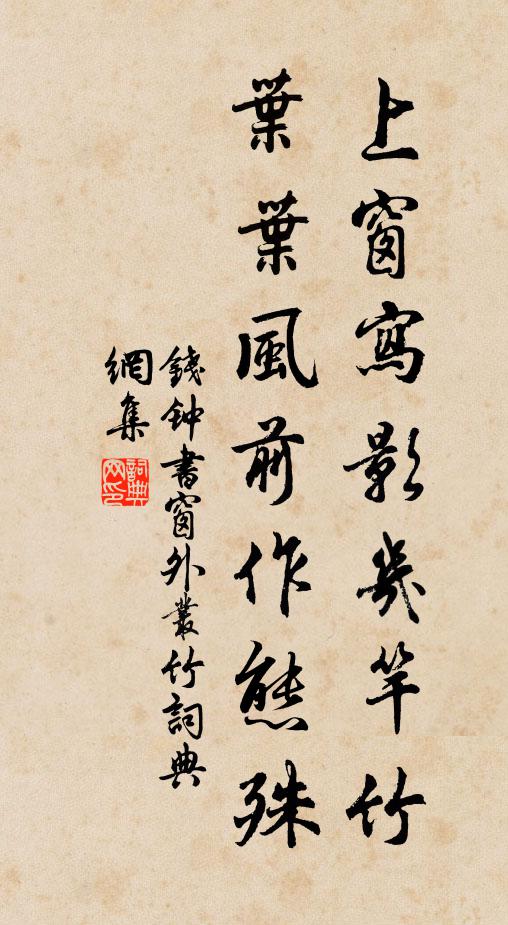 上窗寫影幾竿竹
葉葉風前作態殊
錢钟書窗外叢竹詞典
網集
詞典
网印